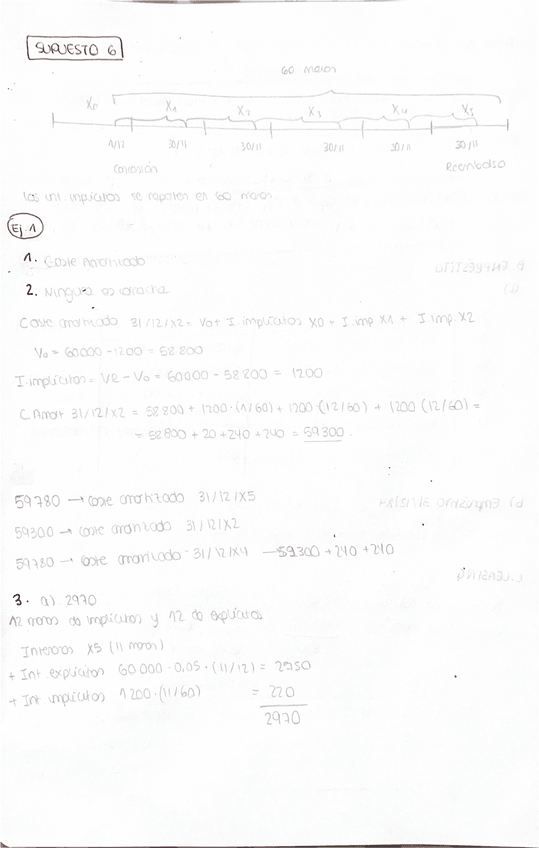 SUPUESTO 6
60 meses
X0 X1 X2 X3 X4 X5
1/12 30/11 30/11 30/11 30/11 30/11
Reembolso
Los int. implícitos se reparten en 60 meses
Ej. 1
1. Coste Amortizado
2. Ninguna es correcta
Coste amortizado 31/12/X2 = V0 + I. implícitos X0 + I. imp X1 + I. imp. X2
V0 = 60000 - 1200 = 58 800
I. implícitos = VR - V0 = 60000 - 58 800 = 1200
C Amort 31/12/X2 = 58 800 + 1200·(1/60) + 1200·(12/60) + 1200 (12/60) =
= 58 800 + 20 + 240 + 240 = 59300.
59780 → coste amortizado 31/12/X5
59300 → coste amortizado 31/12/X2
59780 → coste amortizado 31/12/X4 → 59300 + 240 + 240
3. a) 2970
12 meses de implícitos y 12 de explícitos
Intereses X5 (11 meses)
+ Int. explícitos 60 000 · 0,05 · (11/12) = 2750
+ Int implícitos 1 200·(11/60) = 220
2970